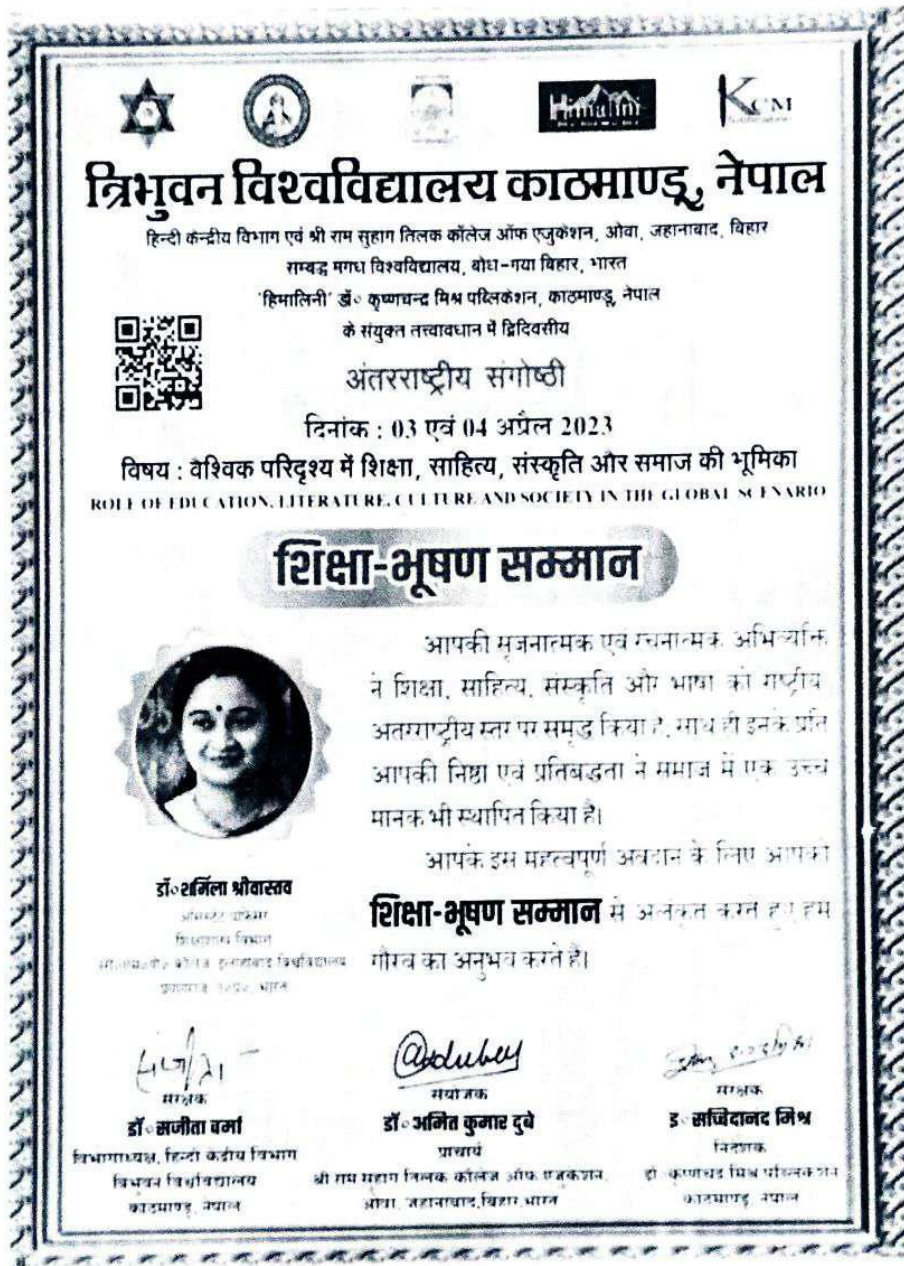 Himalini
KCM
त्रिभुवन विश्वविद्यालय काठमाण्डू, नेपाल
हिन्दी केन्द्रीय विभाग एवं श्री राम सुहाग तिलक कॉलेज ऑफ एजुकेशन, ओवा, जहानाबाद, बिहार
सम्बद्ध मगध विश्वविद्यालय, बोध-गया बिहार, भारत
'हिमालिनी' डॉ॰ कृष्णचन्द्र मिश्र पब्लिकेशन, काठमाण्डू, नेपाल
के संयुक्त तत्त्वावधान में द्विदिवसीय
अंतरराष्ट्रीय संगोष्ठी
दिनांक : 03 एवं 04 अप्रैल 2023
विषय : वैश्विक परिदृश्य में शिक्षा, साहित्य, संस्कृति और समाज की भूमिका
ROLE OF EDUCATION, LITERATURE, CULTURE AND SOCIETY IN THE GLOBAL SCENARIO
शिक्षा-भूषण सम्मान
आपकी सृजनात्मक एवं रचनात्मक अभिव्यक्ति
ने शिक्षा, साहित्य, संस्कृति और भाषा को राष्ट्रीय
अंतरराष्ट्रीय स्तर पर समृद्ध किया है, साथ ही इनके प्रति
आपकी निष्ठा एवं प्रतिबद्धता ने समाज में एक उच्च
मानक भी स्थापित किया है।
आपके इस महत्वपूर्ण अवदान के लिए आपको
शिक्षा-भूषण सम्मान से अलंकृत करते हुए हम
गौरव का अनुभव करते है।
डॉ॰ शर्मिला श्रीवास्तव
शिक्षाशास्त्र विभाग
कॉलेज इलाहाबाद विश्वविद्यालय
प्रयागराज, उ॰प्र॰, भारत
संरक्षक
डॉ॰ संजीता वर्मा
विभागाध्यक्ष, हिन्दी केंद्रीय विभाग
त्रिभुवन विश्वविद्यालय
काठमाण्डू, नेपाल
@kdubey
संयोजक
डॉ॰ अमित कुमार दुबे
प्राचार्य
श्री राम सुहाग तिलक कॉलेज ऑफ एजुकेशन,
ओवा, जहानाबाद, बिहार, भारत
संरक्षक
इ॰ सच्चिदानंद मिश्र
निदेशक
डॉ॰ कृष्णचंद्र मिश्र पब्लिकेशन
काठमाण्डू, नेपाल